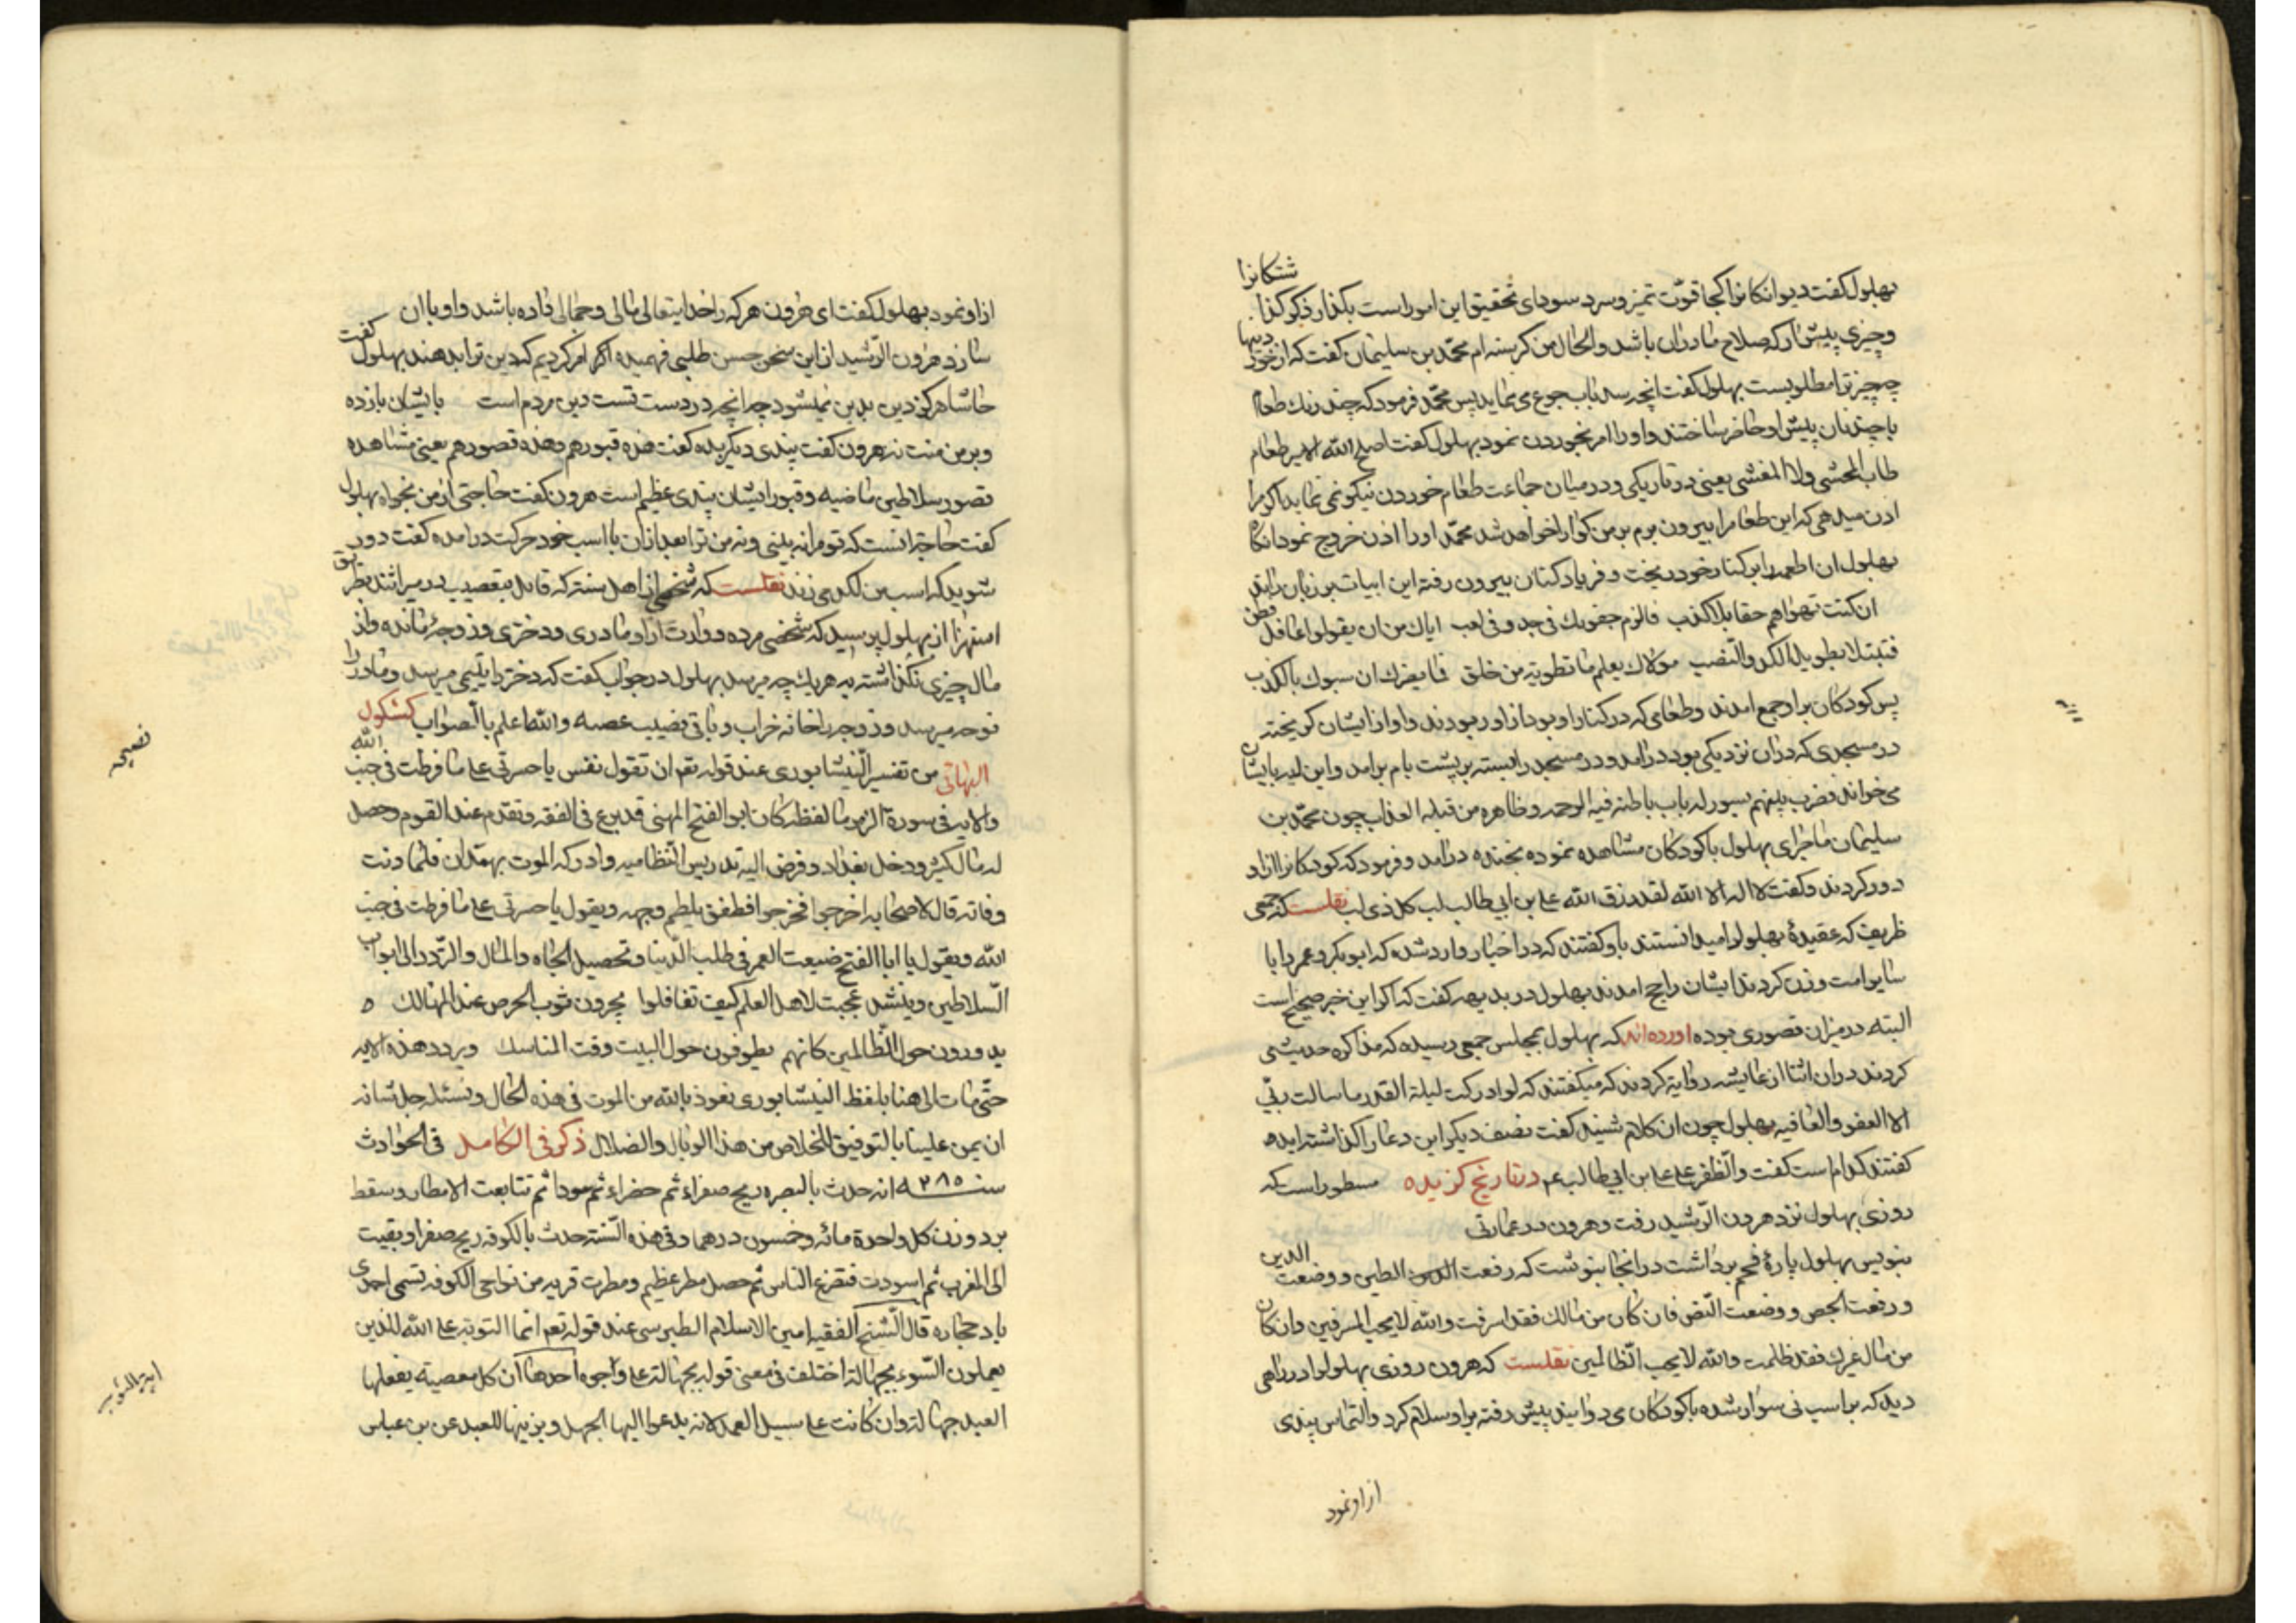 شتکانرا
بهلول کفت دیوانکانرا کجا قوّت تمیز و سرد سودای تحقیق این امور است بکذار ذکر کذ
وچیزی پیش ار که صلاح مادران باشد والحال من کرسنه ام محمّد بن سلیمان کفت که از خوردنیها
چه چیز ترا مطلوبست بهلول کفت انچه سد باب جوع می نماید پس محمّد فرمود که چند رنك طعام
با چند نان پیش او حاضر ساختند و او را امر بخوردن نمود بهلول کفت اصلح الله الامیر طعام
طاب المحشی ولا المغشی یعنی در تاریکی و در میان جماعت طعام خوردن نیکو نمی نماید اکر مرا
اذن میدهی که این طعام را بیرون برم بر من کوارا خواهد شد محمّد او را اذن خروج نمود انکاه
بهلول ان اطعمه را بر کنار خود ریخت و فریاد کنان بیرون رفته این ابیات بر زبان راند
ان کنت تهواهم حقا بلا کذب فالزم جنونك فی جد و فی لعب ایاك من ان یقولوا عاقل فطن
فتبتلا بطویل الکد والنصب مولاك یعلم ما تطویه من خلق فما یضرك ان سبوك بالکذب
پس کودکان بر او جمع امدند و طعامی که در کنار او بود از او ربودند و او از ایشان کریخته
در مسجدی که دران نزدیکی بود درامد و در مسجد را بسته بر پشت بام برامد و این ایه بایشان
می خواند فضرب بینهم بسور له باب باطنه فیه الرحمه و ظاهره من قبله العذاب چون محمّد بن
سلیمان ماجرای بهلول با کودکان مشاهده نموده بخنده درامد و فرمود که کودکانرا ازاو
دور کردند و کفت لا اله الا الله لقد رزق الله علی بن ابی طالب لب کل ذی لب نقلست که جمعی
ظریف که عقیدهٔ بهلول را میدانستند باو کفتند که در اخبار وارد شده که ابو بکر و عمر را با
سایر امت وزن کردند ایشان راجح امدند بهلول در بدیهه کفت که اکر این خبر صحیح است
البته در میزان قصوری بوده اورده اند که بهلول بمجلس جمعی رسیده که مذاکره حدیثی
کردند دران اثنا از عایشه روایة کردند که میکفتند که لو ادرکت لیلة القدر ما سالت ربّی
الا العفو والعافیه بهلول چون ان کلام شنید کفت نصف دیکر این دعا را کذاشته اید
کفتند کدام است کفت والظفر علی علی بن ابی طالب عم در تاریخ کزیده مسطور است که
روزی بهلول نزد هرون الرشید رفت و هرون در عمارتی
بنویس بهلول پارهٔ فحم برداشت در انجا بنوشت که رفعت الطین و وضعت الدین
و رفعت الجص و وضعت النص فان کان من مالك فقد اسرفت والله لا یحب المسرفین وان کان
من مال غیرك فقد ظلمت والله لا یحب الظالمین نقلست که هرون روزی بهلول را در راهی
دید که بر اسب نی سوار شده با کودکان می دوانید پیش رفته بر او سلام کرد و التماس پندی
از او نمود
از او نمود بهلول کفت ای هرون هر که را خدایتعالی مالی و جمالی داده باشد و او با ان
سازد هرون الرشید از این سخن حسن طلبی فهمیده اکر امر کردیم که دین ترا بدهند بهلول کفت
حاشا هرکز دین بدین نمیشود چه انچه در دست تست دین مردم است بایشان بازده
و بر من منت نه هرون کفت پندی دیکر بده کفت هذه قبورهم وهذه قصورهم یعنی مشاهده
قصور سلاطین ماضیه و قبور ایشان پندی عظیم است هرون کفت حاجتی از من بخواه بهلول
کفت حاجة انست که تو مرا نه بینی و نه من ترا بعد ازان با اسب خود حرکت درامده کفت دور
شوید که اسب من لکد می زند نقلست که شخصی از اهل سنت که قایل بتعصیب در میراثند بطریق
استهزا از بهلول پرسید که شخصی مرده و وارث از او مادری و دختری و زوجهٔ مانده و از
مال چیزی نکذاشته به هر یك چه میرسد بهلول در جواب کفت که دختر را یتیمی میرسد و مادر را
نوحه میرسد و زوجه را خانه خراب و باقی نصیب عصبه والله اعلم بالصواب کشکول
البهائی من تفسیر النیشابوری عند قوله تعم ان تقول نفس یا حسرتی علی ما فرطت فی جنب الله
والایه فی سورة الزمر ما لفظه کان ابو الفتح المهنی قد برع فی الفقه و تقدم عند القوم وحصل
له مال کثیر ودخل بغداد و فوض الیه تدریس النظامیه وادرکه الموت بهمدان فلما دنت
وفاته قال لاصحابه اخرجوا فخرجوا فطفق یلطم وجهه ویقول یا حسرتی علی ما فرطت فی جنب
الله ویقول یا ابا الفتح ضیعت العمر فی طلب الدنیا وتحصیل الجاه والمال والتردد الی ابواب
السلاطین وینشد عجبت لاهل العلم کیف تغافلوا یجرون ثوب الحرص عند المهالك ه
یدورون حول الظالمین کانهم یطوفون حول البیت وقت المناسك ویردد هذه الایه
حتّی مات الی هنا بلفظ النیشابوری نعوذ بالله من الموت فی هذه الحال ونسئله جل شانه
ان یمن علینا بالتوفیق للخلاص من هذا الوبال والضلال ذکر فی الکامل فی الحوادث
سنه ۲۸۵ انه حدث بالبصره ریح صفراء ثم خضراء ثم سودا ثم تتابعت الامطار وسقط
برد وزن کل واحدة مائه وخمسون درهما وفی هذه السنة حدث بالکوفه ریح صفرا وبقیت
الی المغرب ثم اسودت فتضرع الناس ثم حصل مطر عظیم ومطرت قریه من نواحی الکوفه تسمی احمدی
باد حجاره قال الشیخ الفقیه امین الاسلام الطبرسی عند قوله تعم انما التوبة علی الله للذین
یعملون السوء بجهالة اختلف فی معنی قوله بجهالة علی واجوه احدها ان کل معصیة یفعلها
العبد جهالة وان کانت علی سبیل العمد لانه یدعوا الیها الجهل ویزینها للعبد عن بن عباس
نصیحه